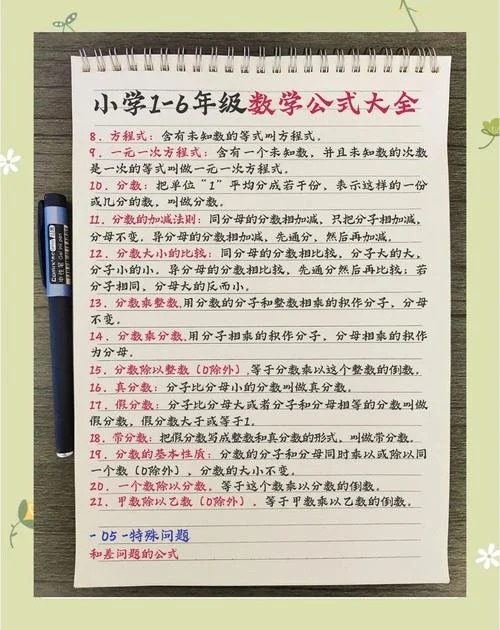 小学1-6年级数学公式大全
8. 方程式：含有未知数的等式叫方程式。
9. 一元一次方程式：含有一个未知数，并且未知数的次数
是一次的等式叫做一元一次方程式。
10. 分数：把单位“1”平均分成若干份，表示这样的一份
或几分的数，叫做分数。
11. 分数的加减法则：同分母的分数相加减，只把分子相加减，
分母不变，异分母的分数相加减，先通分，然后再加减。
12. 分数大小的比较：同分母的分数相比较，分子大的大，
分子小的小。异分母的分数相比较，先通分然后再比较；若
分子相同，分母大的反而小。
13. 分数乘整数,用分数的分子和整数相乘的积作分子，分母
不变。
14. 分数乘分数,用分子相乘的积作分子，分母相乘的积作
为分母。
15. 分数除以整数（0除外）,等于分数乘以这个整数的倒数。
16. 真分数：分子比分母小的分数叫做真分数。
17. 假分数：分子比分母大或者分子和分母相等的分数叫做
假分数，假分数大于或等于1。
18. 带分数：把假分数写成整数和真分数的形式，叫做带分数。
19. 分数的基本性质：分数的分子和分母同时乘以或除以同
一个数（0除外），分数的大小不变。
20. 一个数除以分数，等于这个数乘以分数的倒数。
21. 甲数除以乙数（0除外），等于甲数乘以乙数的倒数。
- 05 -特殊问题
和差问题的公式